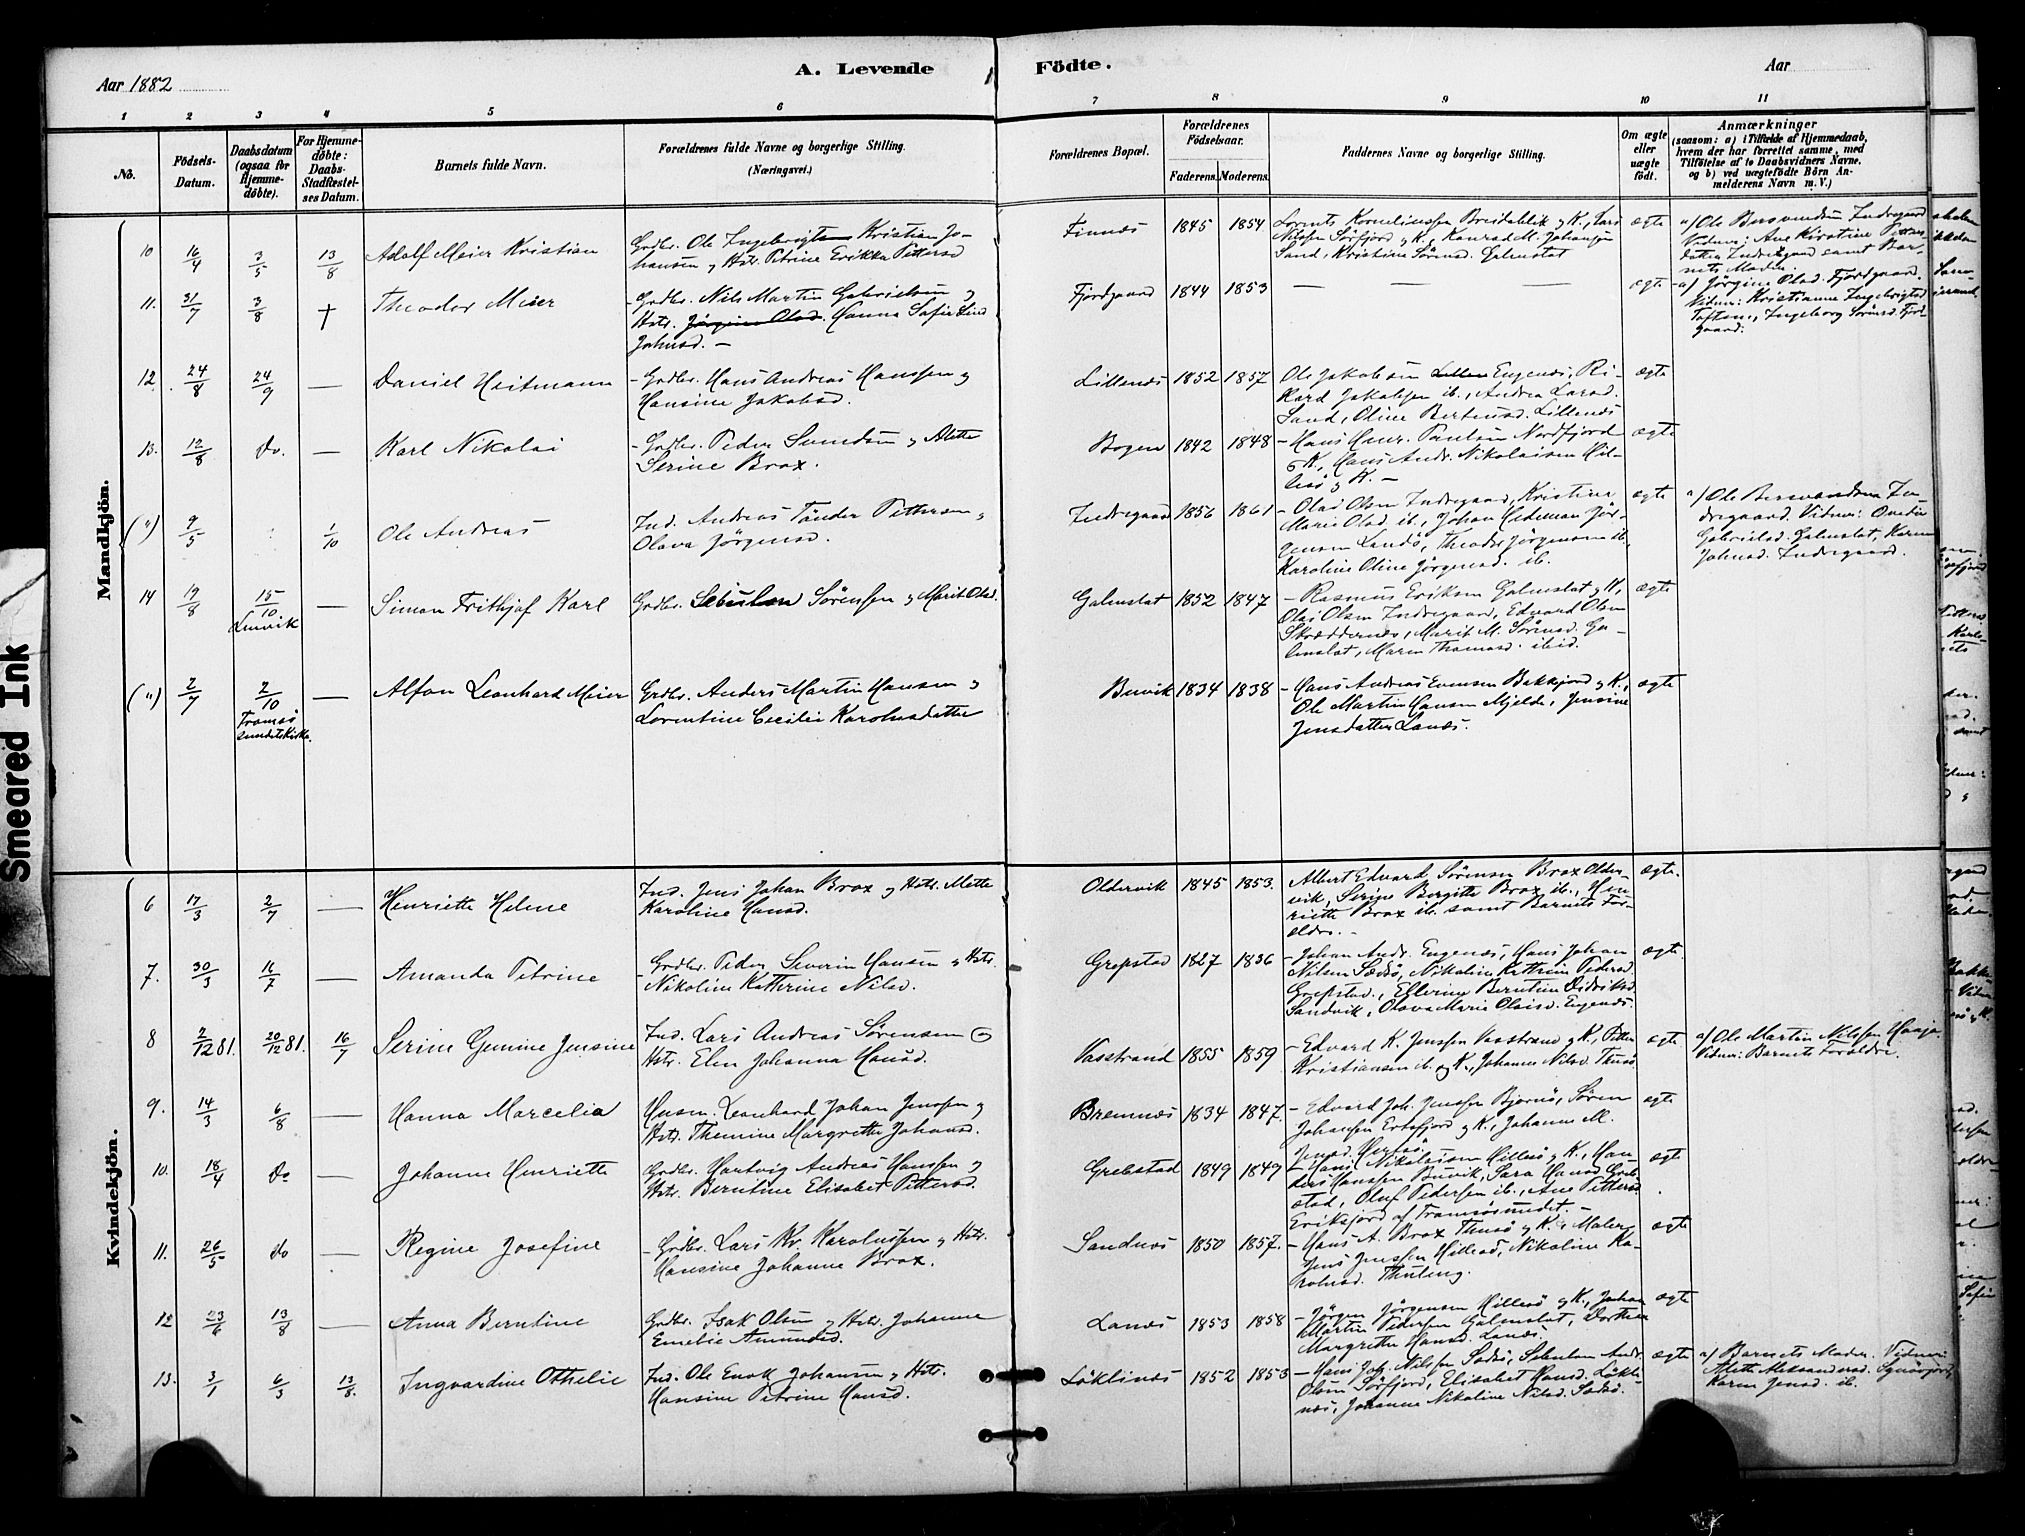 Aar 1882
A. Levende
Födte.
Aar
1 2 3 4 5 6 7 8 9 10 11
No.
Födsels-
Datum.
Daabsdatum
(ogsaa for
Hjemme-
döbte).
For Hjemme-
döbte:
Daabs-
Stadfæstel-
ses Datum.
Barnets fulde Navn.
Forældrenes fulde Navne og borgerlige Stilling.
(Næringsvei.)
Forældrenes Bopæl.
Forældrenes
Födselsaar.
Faderens. Moderens.
Faddernes Navne og borgerlige Stilling.
Om ægte
eller
uægte
födt.
Anmærkninger
(saasom: a) i Tilfælde af Hjemmedaab,
hvem der har forrettet samme, med
Tilföielse af to Daabsvidners Navne,
og b) ved uægtefödte Börn An-
melderens Navn m.V.)
Mandkjön.
10 16/4 3/5 13/8 Adolf Meier Kristian
Grdbr. Ole Ingebrigtsen Kristian Jo-
hansen og Hstr. Petrine Erikka Pettersd
Finnes 1845 1854
Lorents Korneliussen Breidablik og K., Lars
Nilsen Sörfjord og K., Konrad M. Johansen
Sand, Kristine Sörensd. Galmstat
ægte
a) Ole Bersvendsen Indregaard
Vidner: Ane Kirstine Petters-
datter Indregaard samt Bar-
nets Moder.
11. 31/7 3/8 † Theodor Meier
- Grdbr. Nils Martin Gabrielsen og
Hstr. Jörgine Olsd. Hanna Sofie Lind
Johnsd. -
Fjordgaard 1844 1853 — — — ægte
a) Jörgine Olsd. Fjordgaard.
Vidner: Kristianne Ingebrigtsd
Toften, Ingeborg Sörensd. Fjord-
gaard.
12. 24/8 24/9 — Daniel Heitmann
- Grdbr. Hans Andreas Hanssen og
Hansine Jakobsd.
Lillenes 1852 1857
Ole Jakobsen Lillen Engenes, Ri-
kard Jakobsen ib., Andrea Larsd.
Sand, Oline Berteusd. Lillenes
ægte
13. 12/8 do. — Karl Nikolai
- Grdbr. Peder Simonsen og Alette
Serine Brox.
Bogen 1842 1848
- Hans Henr. Paulsen Nordfjord
og K., Hans Andr. Nikolaisen Hil-
lesö og K. -
ægte
(") 9/5 1/10 Ole Andreas
Ind. Andreas Tönder Pettersen og
Olava Jörgensd.
Indregaard 1856 1861
- Olai Olsen Indregaard, Kristine
Marie Olsd. ib., Johan Hedeman Jör-
gensen Landö, Theodor Jörgensen ib.,
Karoline Oline Jörgensd. ib.
ægte
a) Ole Bersvendsen In-
dregaard. Vidner:
Gabrielsd. Galmstat, Karen
Johnsd. Indregaard.
14 19/8 15/10 Lenvik — Simon Frithjof Karl
Grdbr. Sebulon Sörensen og Marit Olsd.
Galmstat 1852 1847
- Rasmus Eriksen Galmstat og K,
Olai Olsen Indregaard, Edvard Olsen
Skrædderness, Marit M. Sörensd. Ga-
lmstat, Maren Thomasd. ibid.
ægte
(") 2/7 2/10 Tromsö
sundets Kirke. — Alfon Leonhard Meier
Grdbr. Anders Martin Hansen og
Lorentine Cecilie Karolusdatter
Buvik 1834 1838
- Hans Andreas Evensen Bakkejord og K.,
Ole Martin Hansen Mjelde, Jensine
Jensdatter Lanes.
ægte
Kvindekjön.
6 17/3 2/7 — Henriette Helene
Ind. Jens Johan Brox og Hstr. Mette
Karoline Hansd.
Oldervik 1845 1853.
Albert Edvard Sörensen Brox Older-
vik, Serine Bergitte Brox ib., Hen-
riette Brox ib. samt Barnets For-
ældre. -
ægte.
7. 30/3 16/7 — Amanda Petrine
- Grdbr. Peder Severin Hansen og Hstr.
Nikoline Katterine Nilsd.
Grepstad 1827 1836
- Johan Andr. Engenes, Hans Johan
Nilsen Sædsö, Nikoline Kathrine Pedersd
Grepstad, Ellerine Berntine Didriksd
Sandvik, Olava Marie Olaisd. Engenes
ægte.
8 2/12 81. 20/12 81. 16/7 Serine Gemine Jensine
Ind. Lars Andreas Sörensen og
Hstr. Elen Johanna Hansd.
Vasstrand 1855 1859
- Edvard K. Jenssen Vasstrand og K., Petter
Kristiansen ib. og K., Johanne Nilsd. Tussö
ægte
a) Ole Martin Nilssen Haaja.
Vidner: Barnets Forældre.
9. 14/3 6/8 — Hanna Marcelia
Husm. Leonhard Johan Jenssen og
Hstr. Themine Margrethe Johansd.
Bremnes 1834 1847.
- Edvard Joh. Jenssen Bjornö, Sören
Johansen Ersfjord og K., Johanne M.
Jensd. Hersö
ægte
10. 18/4 do — Johanne Henriette
Grdbr. Hartvig Andreas Hanssen og
Hstr. Berntine Elisabet Pettersd.
Grebstad 1849 1849
- Hans Nikolaisen Hillesö og K., Han-
ders Hanssen Buvik, Sara Hansd. Greb-
stad, Oluf Pedersen ib., Ane Pettersd
Eriksfjord af Tromsösundet. -
ægte
11. 26/5 do — Regine Josefine
- Grdbr. Lars Kr. Karolussen og Hstr.
Hansine Johanne Brox.
Sandnes 1850 1857.
- Hans A. Brox Tussö og K., Maler
Jens Jenssen Hillesö, Nikoline Ka-
rolusd.
ægte
12 23/6 13/8 — Anna Berntine
Grdbr. Isak Olsen og Hstr. Johanne
Emelie Amundsd.
Lanes 1853 1858
- Jörgen Jörgensen Hillesö og K., Johan
Martin Pedersen Galmstat, Dorthea
Margrethe Hansd. Lanes.
ægte
13. 3/1 6/3 13/8. Ingvardine Othelie
Ind. Ole Enok Johansen og Hstr.
Hansine Petrine Hansd.
Löklines 1852 1853
- Hans Joh. Nilssen Sædsö, Sebulon Andr.
Olsen Sörfjord, Elisabet Hansd. Lökli-
nes, Johanne Nikoline Nilsd. Sædsö.
ægte
a) Barnets Moder. Vidner:
Alette Aleksandersd.
Karen Jensd. ib.
Smeared Ink